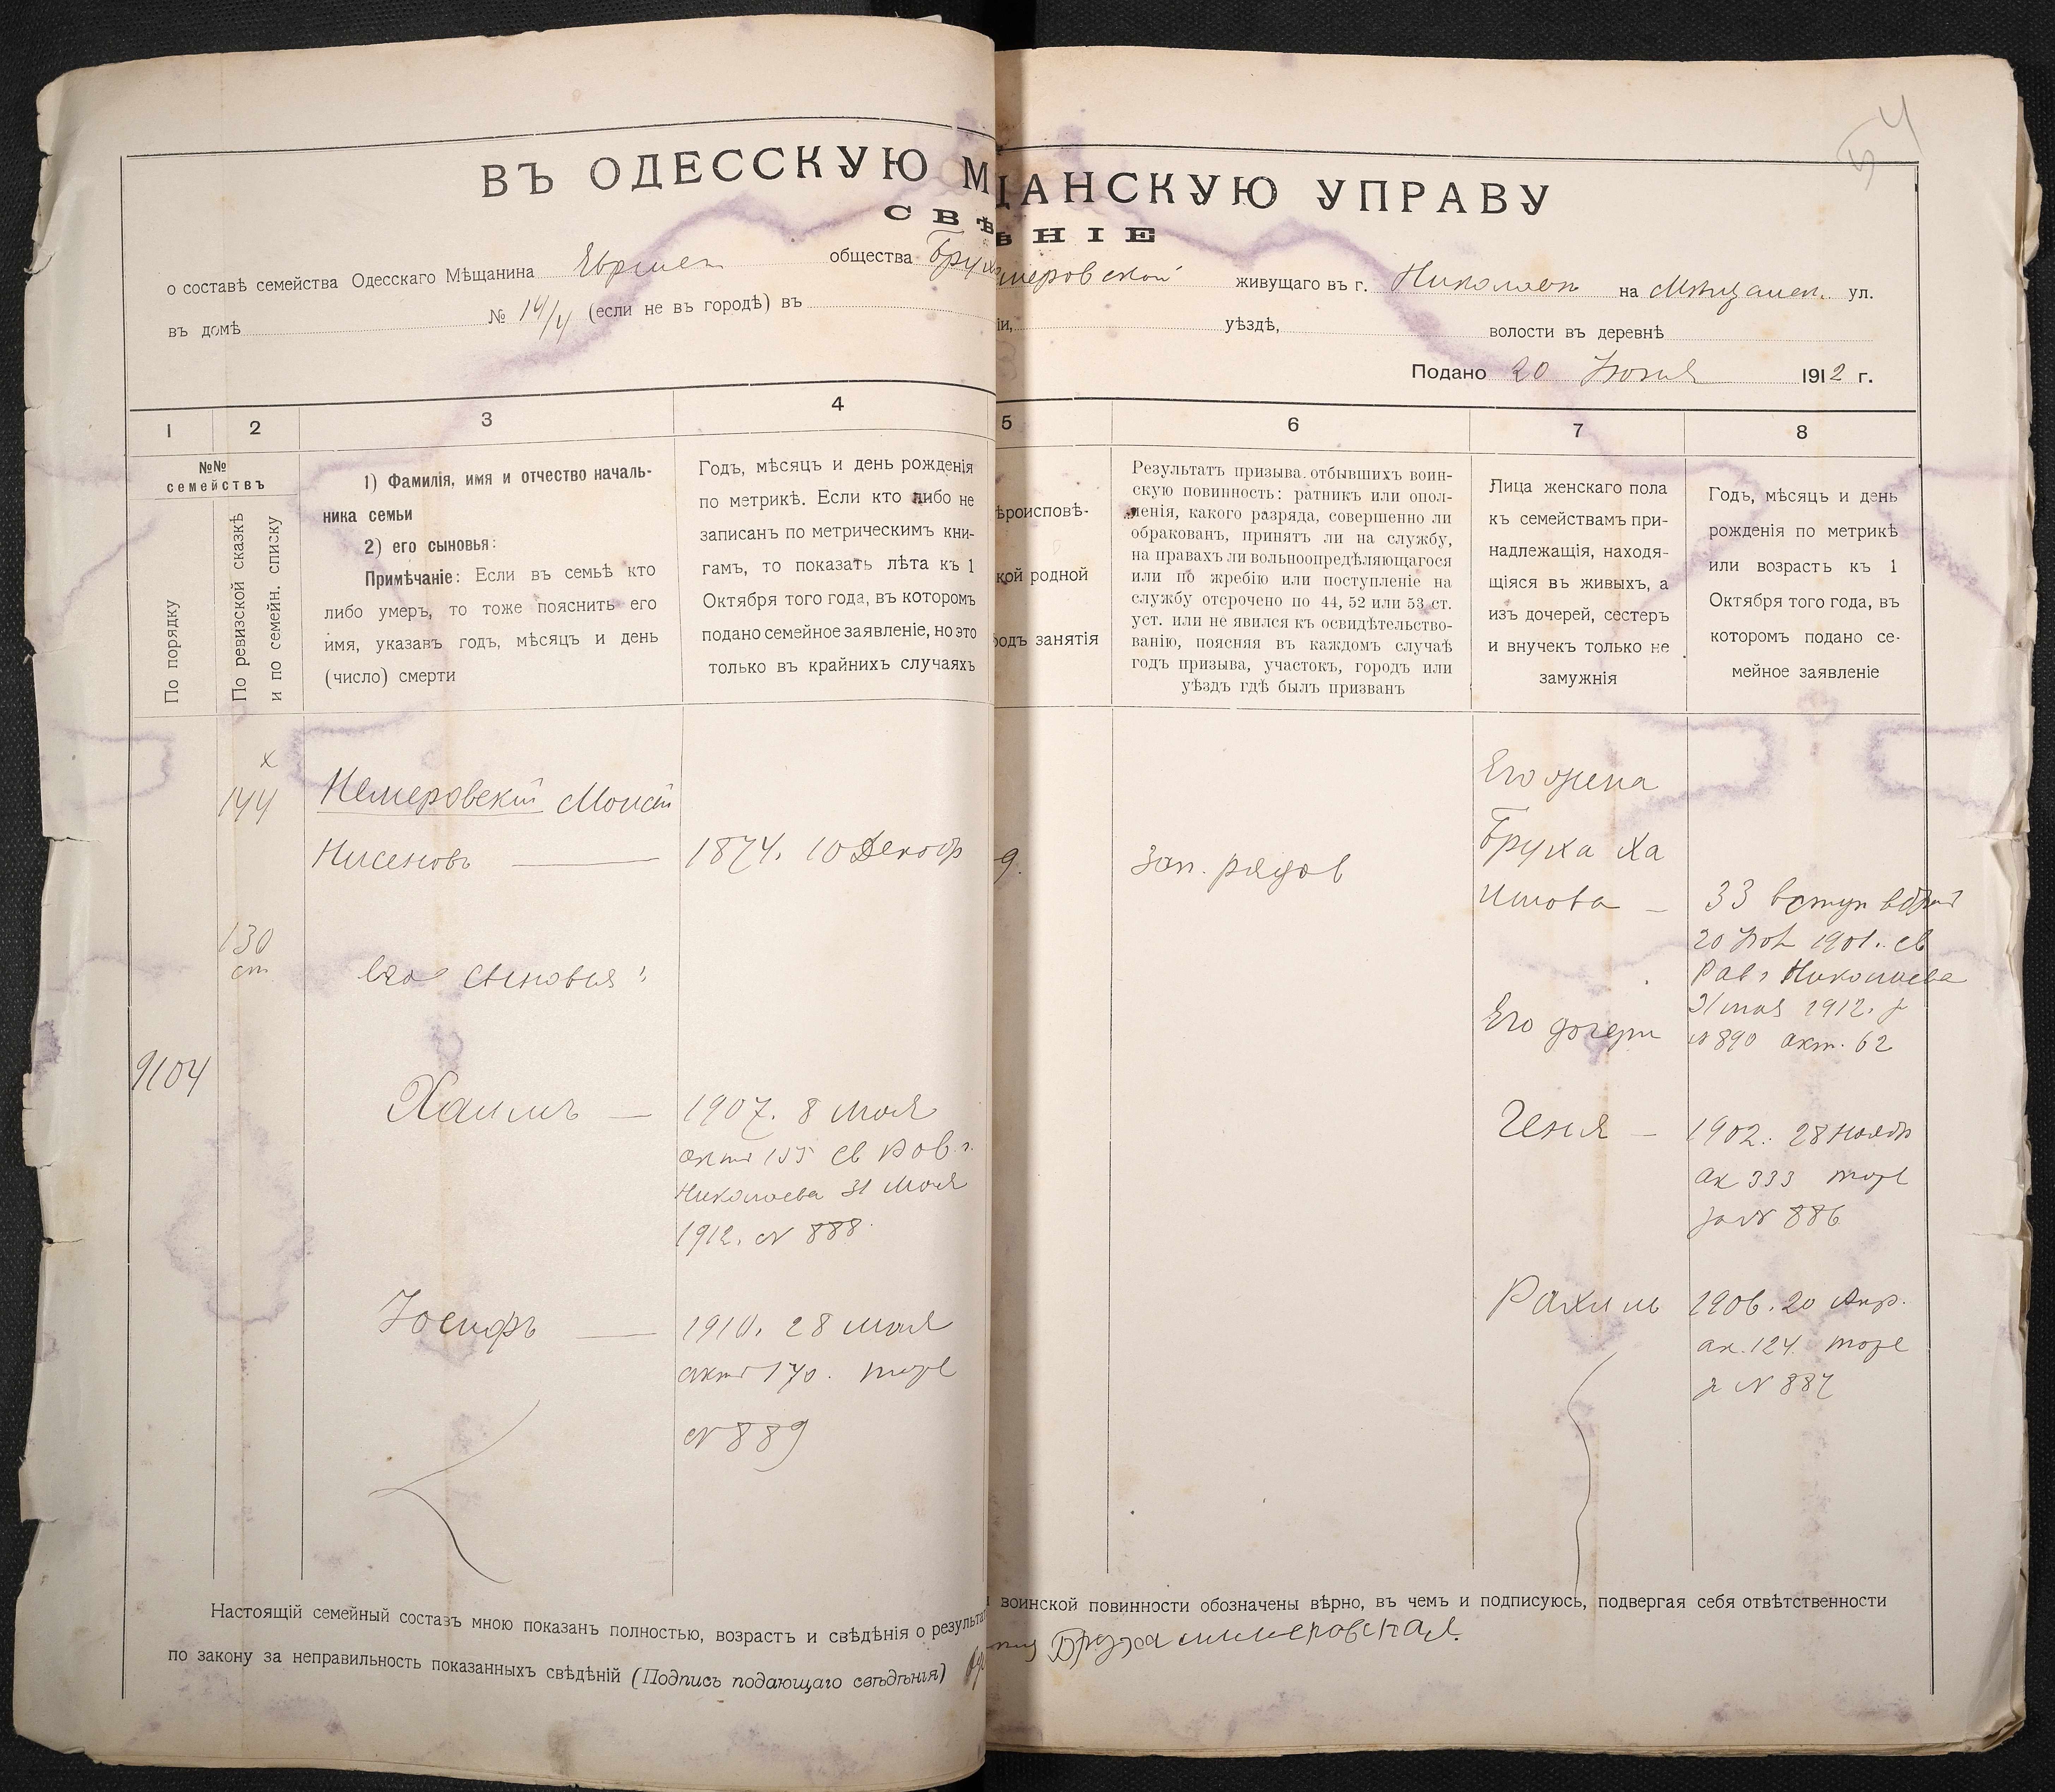 ВЪ ОДЕССКУЮ М ЩАНСКУЮ УПРАВУ
СВѢ ѢНІЕ
о составѣ семейства Одесскаго Мѣщанина общества живущаго въ г. Николаевъ на Мѣщанск. ул.
въ домѣ № 14/4 (если не въ городѣ) въ іи, уѣздѣ, волости въ деревнѣ
Подано 20 Іюня 1912 г.
1 2 3 4 5 6 7 8
№№ семействъ
По порядку
По ревизской сказкѣ
и по семейн. списку
1) Фамилія, имя и отчество началь-
ника семьи
2) его сыновья:
Примѣчаніе: Если въ семьѣ кто
либо умеръ, то тоже пояснить его
имя, указавъ годъ, мѣсяцъ и день
(число) смерти
Годъ, мѣсяцъ и день рожденія
по метрикѣ. Если кто либо не
записанъ по метрическимъ кни-
гамъ, то показать лѣта къ 1
Октября того года, въ которомъ
подано семейное заявленіе, но это
только въ крайнихъ случаяхъ
ѣроисповѣ-
кой родной
родъ занятія
Результатъ призыва. отбывшихъ воин-
скую повинность: ратникъ или опол-
ленія, какого разряда, совершенно ли
обракованъ, принятъ ли на службу,
на правахъ ли вольноопредѣляющагося
или по жребію или поступленіе на
службу отсрочено по 44, 52 или 53 ст.
уст. или не явился къ освидѣтельство-
ванію, поясняя въ каждомъ случаѣ
годъ призыва, участокъ, городъ или
уѣздъ гдѣ былъ призванъ
Лица женскаго пола
къ семействамъ при-
надлежащія, находя-
щіяся въ живыхъ, а
изъ дочерей, сестеръ
и внучекъ только не
замужнія
Годъ, мѣсяцъ и день
рожденія по метрикѣ
или возрастъ къ 1
Октября того года, въ
которомъ подано се-
мейное заявленіе
х
144
Немеровскій Моисей
Нисеновъ — 1874. 10 Декабр
130
ст
его сыновья:
9104
Хаимъ — 1907. 8 мая
актъ 155 св Рав. г.
Николаева 31 Мая
1912. № 888.
Іосифъ — 1910. 28 мая
актъ 170. тоже
№ 889
зап. рядов
Его жена
Бруха Ха
имова —
33 вступ въ бракъ
20 Ноя 1901. св
Рав г Николаева
31 мая 1912. з
№ 890 акт. 62
Его дочери
Геня — 1902. 28 Ноябр
ак 333 тоже
за № 886
Рахиль 1906. 20 Апр.
ак. 124. тоже
з № 887
Настоящій семейный составъ мною показанъ полностью, возрастъ и свѣдѣнія о результат воинской повинности обозначены вѣрно, въ чемъ и подписуюсь, подвергая себя отвѣтственности
по закону за неправильность показанныхъ свѣдѣній (Подпись подающаго свѣдѣнія) Бруха